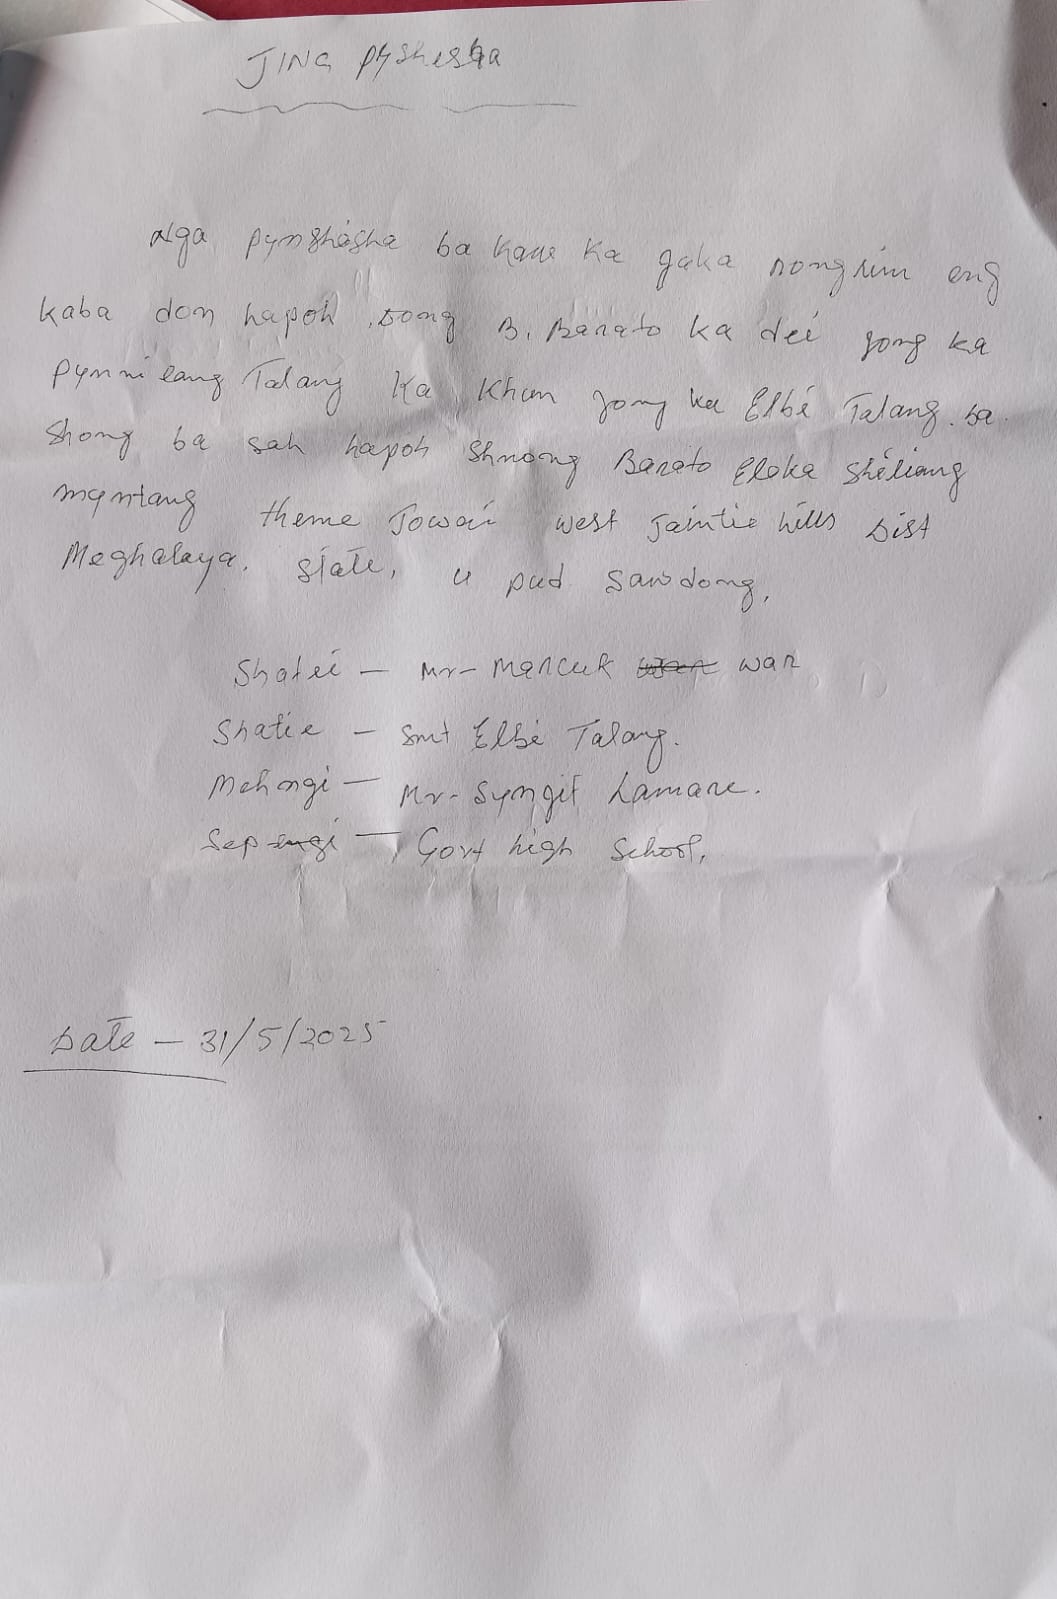 JING PYShisha
Nga pynshisha ba kane ka jaka nongrim eng
kaba don hapoh Dong B. Barato ka dei jong ka
Pynni lang Talang Ka Khun jong ka Elbé Talang. ba
Shong ba sah hapoh Shnong Barato Eloka Shiliang
myntang theme Jowai west Jaintia hills Dist
Meghalaya, state, u pud sawdong,
Shatei – Mr- Marcuk war
Shatie – Smt Elbé Talang.
Mehngi – Mr- Syngit Lamare.
Sepengi – Govt high School,
Date – 31/5/2025